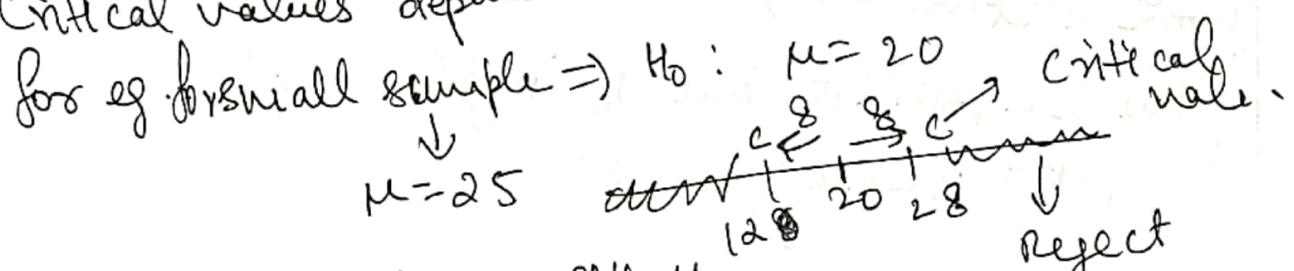 Critical values depe
for eg for small sample ⇒ H₀ : μ = 20
Critical
vale.
↓
c 8 8 c
μ = 25
12 20 28
Reject